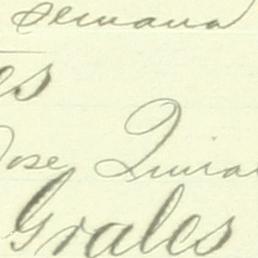 semana
es
Jose Quira
Grales